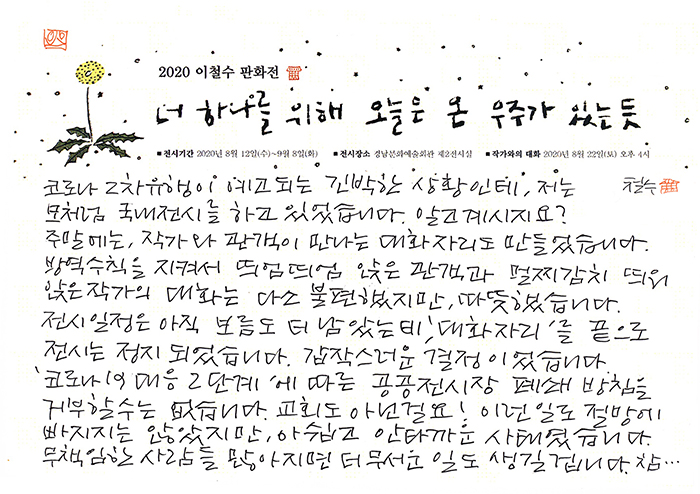 2020 이철수 판화전
너 하나를 위해 오늘은 온 우주가 있는 듯
■ 전시기간 2020년 8월 12일(수)~9월 8일(화) ■ 전시장소 경남문화예술회관 제2전시실 ■ 작가와의 대화 2020년 8월 22일(토) 오후 4시
코로나 2차유행이 예고되는 긴박한 상황인데, 저는
철수
모처럼 국내전시를 하고 있었습니다. 알고계시지요?
주말에는, 작가와 관객이 만나는 대화자리도 만들었습니다.
방역수칙을 지켜서 띄엄띄엄 앉은 관객과 멀찌감치 띄워
앉은 작가의 대화는 다소 불편했지만, 따뜻했습니다.
전시일정은 아직 보름도 더 남았는데, '대화자리'를 끝으로
전시는 정지되었습니다. 갑작스러운 결정이었습니다.
'코로나19 대응 2단계'에 따르는 공공전시장 폐쇄 방침을
거부할수는 없습니다. 교회도 아닌걸요! 이런일로 절망에
빠지지는 않았지만, 아쉽고 안타까운 사태였습니다.
무책임한 사람들 많아지면 더 무서운 일도 생길겁니다. 참…